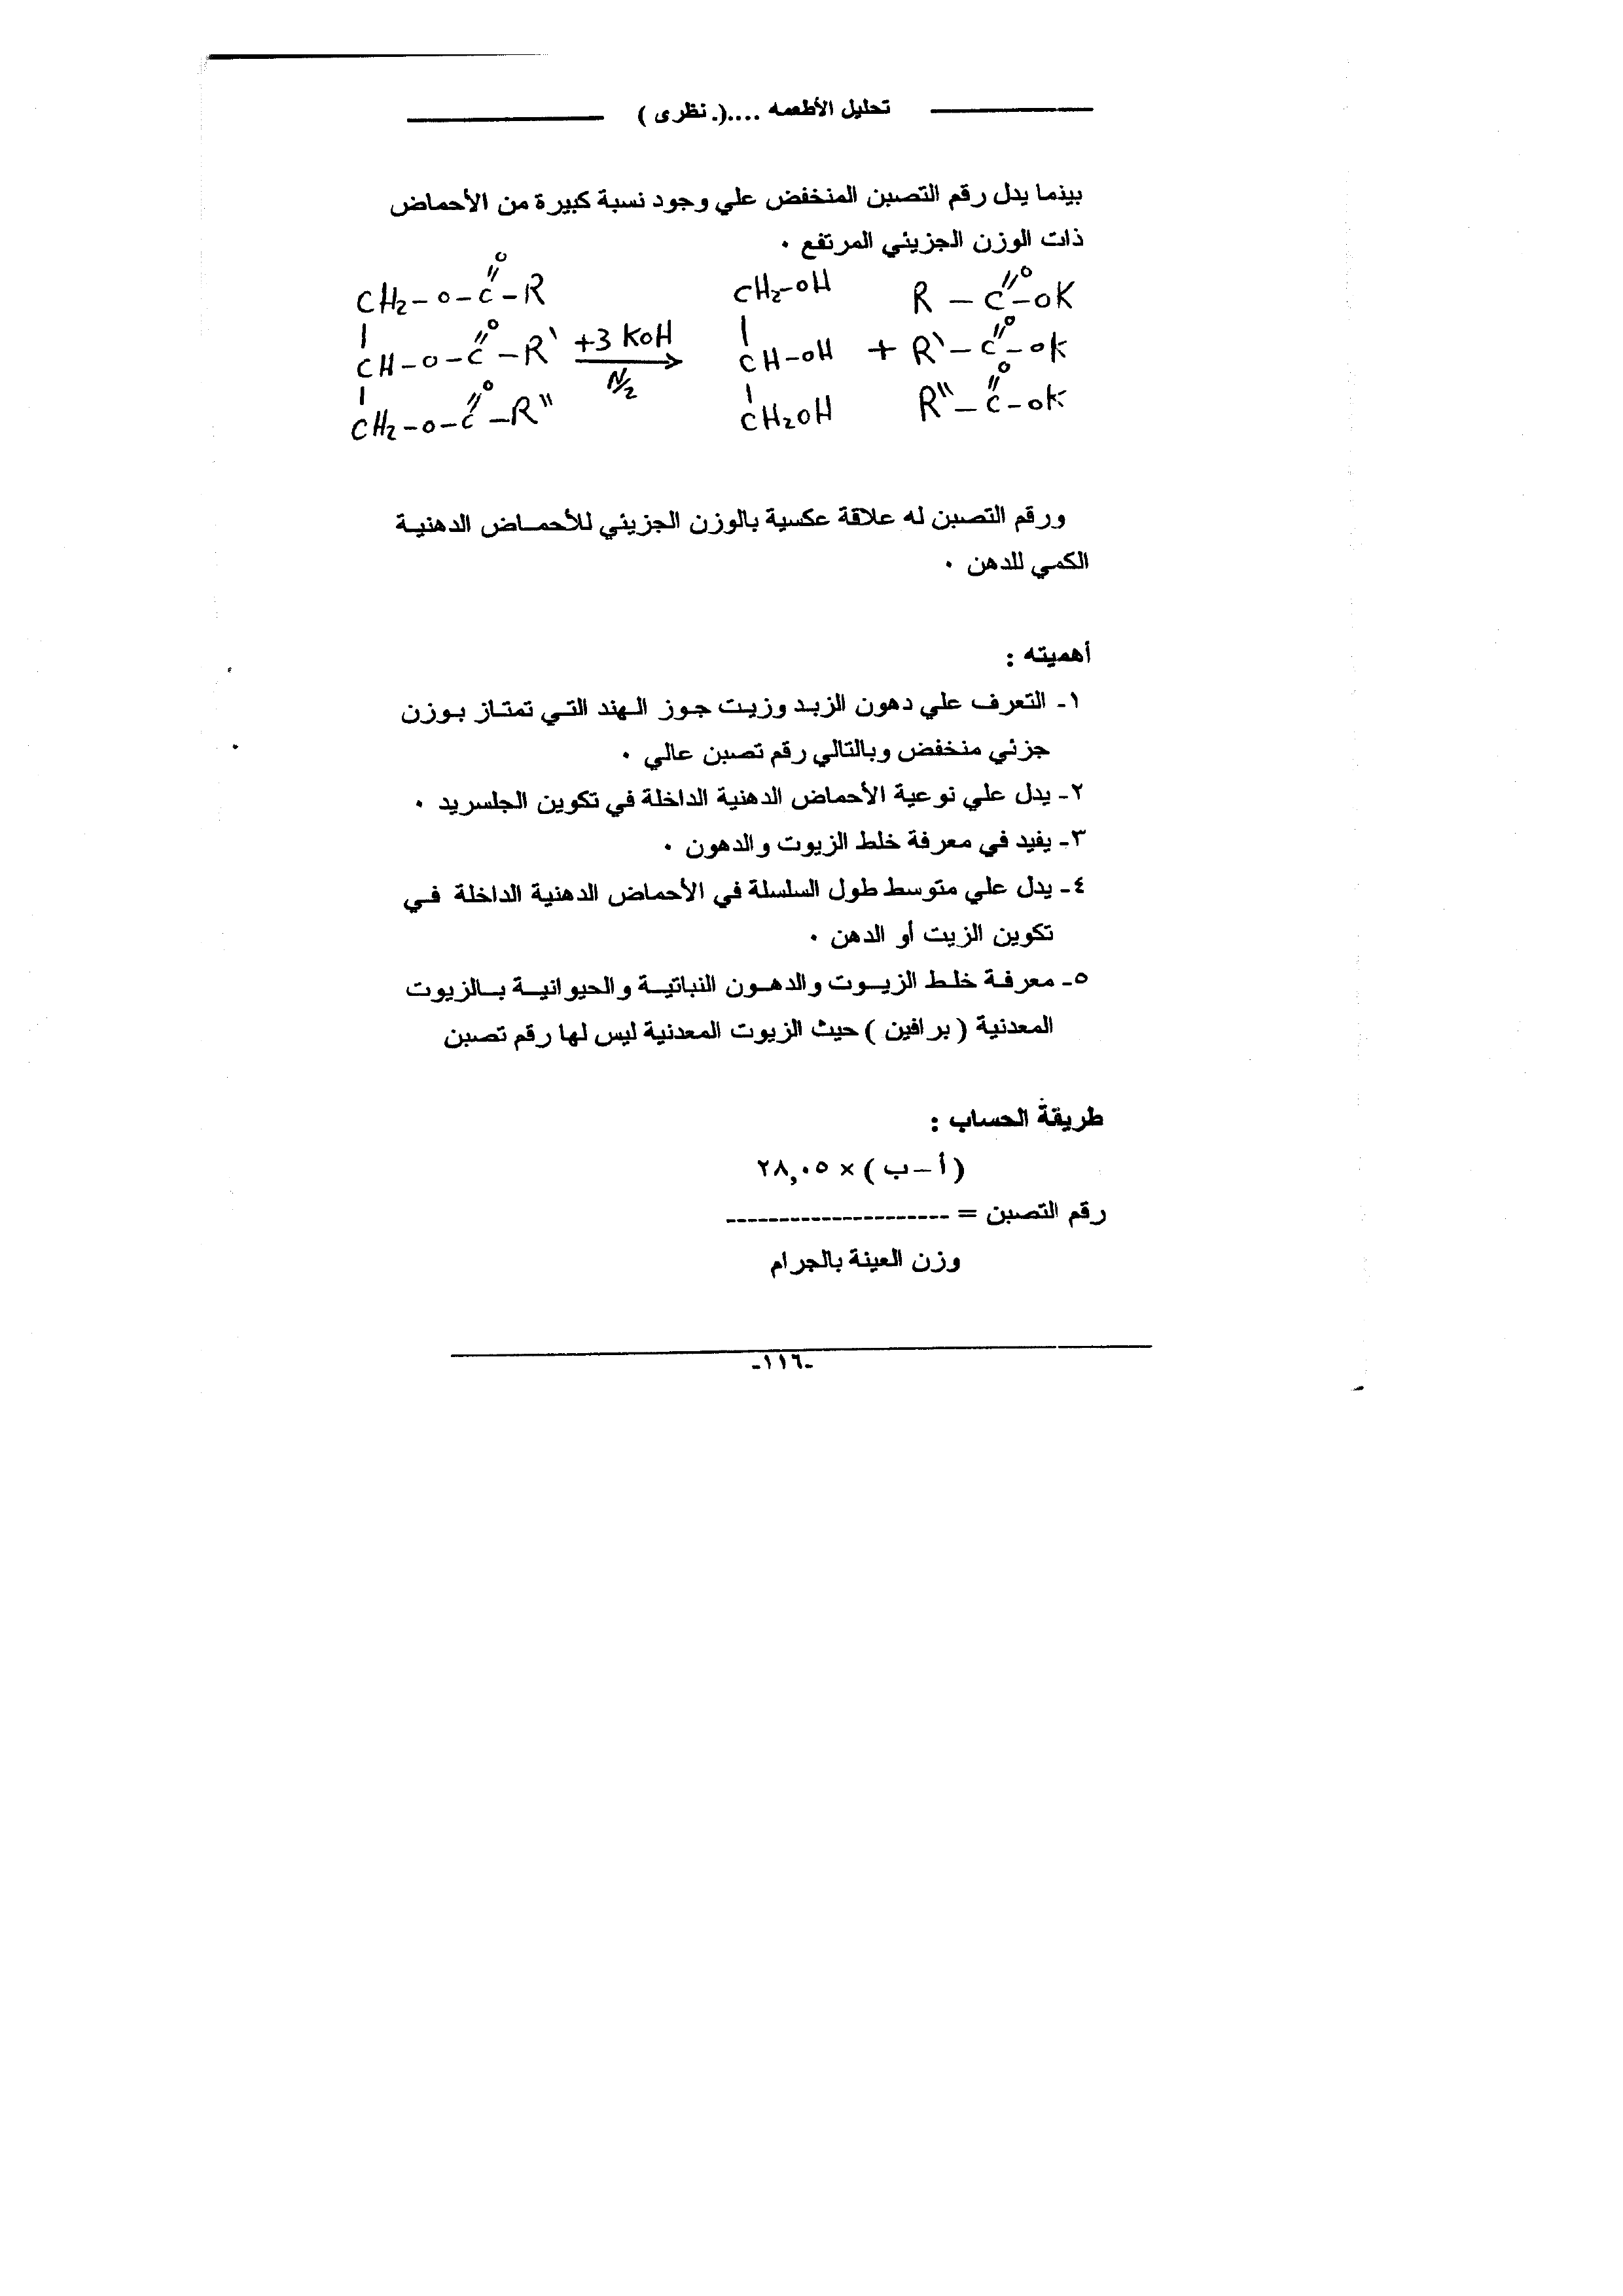 تحليل الأطعمه ....(. نظرى )
بينما يدل رقم التصبن المنخفض علي وجود نسبة كبيرة من الأحماض
ذات الوزن الجزيئي المرتفع ٠
CH₂-O-C(=O)-R CH₂-OH R-C(=O)-OK
CH-O-C(=O)-R' +3 KOH N/2 CH-OH + R'-C(=O)-OK
CH₂-O-C(=O)-R'' CH₂OH R''-C(=O)-OK
ورقم التصبن له علاقة عكسية بالوزن الجزيئي للأحماض الدهنية
الكمي للدهن ٠
أهميته :
١- التعرف علي دهون الزبد وزيت جوز الهند التي تمتاز بوزن
جزئي منخفض وبالتالي رقم تصبن عالي ٠
٢- يدل علي نوعية الأحماض الدهنية الداخلة في تكوين الجلسريد ٠
٣- يفيد في معرفة خلط الزيوت والدهون ٠
٤- يدل علي متوسط طول السلسلة في الأحماض الدهنية الداخلة في
تكوين الزيت أو الدهن ٠
٥- معرفة خلط الزيوت والدهون النباتية والحيوانية بالزيوت
المعدنية ( برافين ) حيث الزيوت المعدنية ليس لها رقم تصبن
طريقة الحساب :
( أ – ب ) × ٢٨,٠٥
رقم التصبن = ---------------------
وزن العينة بالجرام
-١١٦-